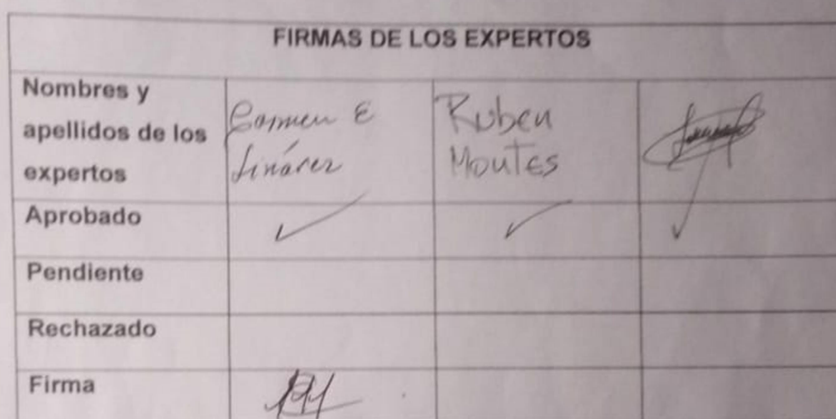 FIRMAS DE LOS EXPERTOS
Nombres y apellidos de los expertos
Carmen E Linárez
Ruben Montes
Aprobado ✓ ✓ ✓
Pendiente
Rechazado
Firma